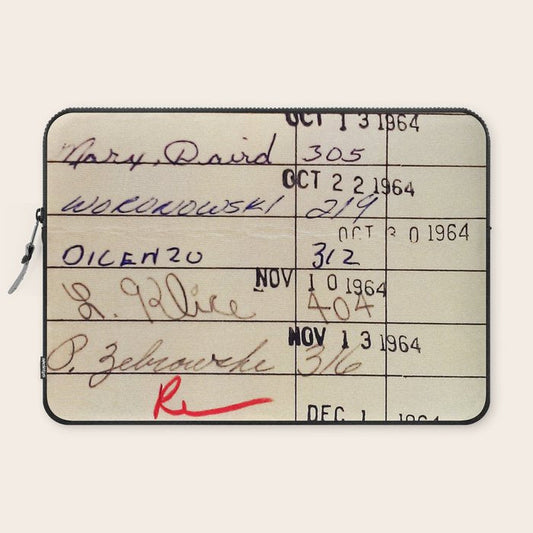 OCT 1 3 1964
Mary, Daird 305
OCT 2 2 1964
WORONOWSKI 219
OCT 3 0 1964
DICENZO 312
NOV 1 0 1964
L. Klice 404
NOV 1 3 1964
P. Zebrowski 316
DEC 1